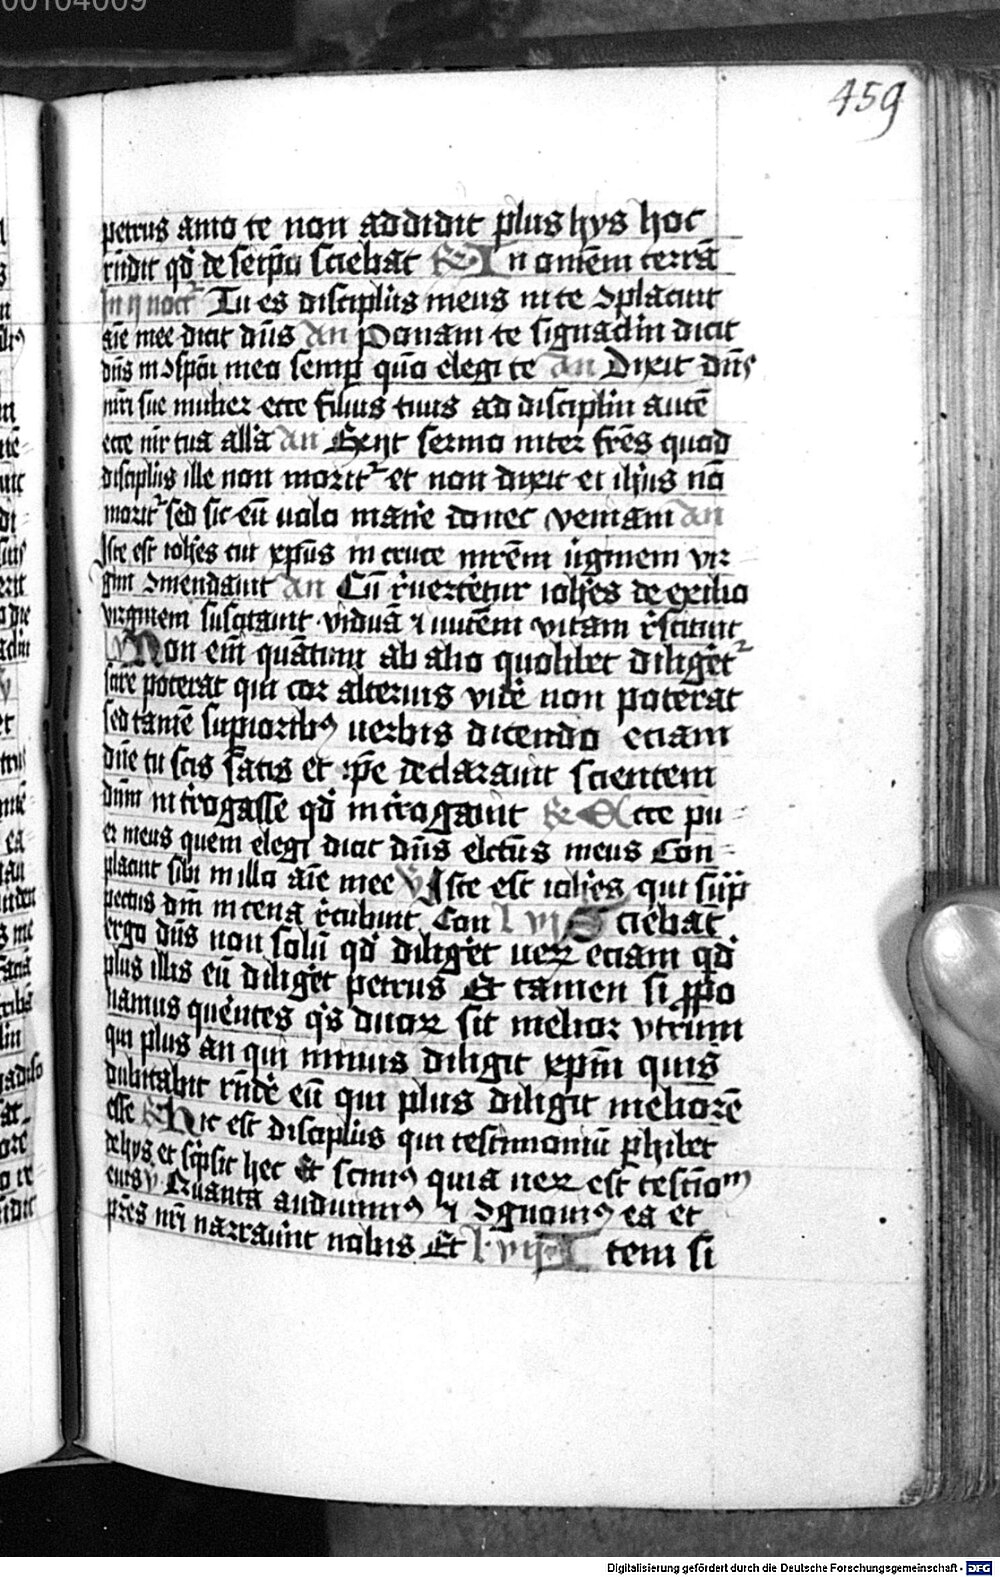 00104009
459
petrus amo te non addidit plus hys hoc
rñdit qd̛ de seip̄o sciebat R̛ In omēm terrā
In ij noct᷒ Tu es discipl̄us meus in te ↄplacuit
aīe mee dicit dn̄s an Ponam te signacl̄m dicit
dn̄s in ↄspc̄u meo semp̱ qm̄ elegi te an Dixit dn̄s
mr̄i sue mulier ecce filius tuus ad discipl̄m autē
ecce mr̄ tua all̄a an Exijt sermo inter fr̄es quod
discipl̄us ille non morit᷒ et non dixit ei ih̄us nō
morit᷒ sed sic eū uolo mane donec veniam an
Iste est ioh̄es cui xp̄us in cruce mr̄em ūginem vir-
gini ↄmendauit an Cū r̛uert̛etur ioh̄es de exilio
virginem suscitauit viduā ⁊ iuuēni vitam r̛stituit
Non eni̅ quātum ab alio quolibet diliget᷒
scire poterat qui cor alterius vid̛e non poterat
sed tamē supioribꝯ uerbis dicendo eciam
dn̄e tu scis satis et ip̄e declarauit scientem
dn̄m int̛rogasse qd̛ int̛rogauit R̛ Ecce pu-
er meus quem elegi dicit dn̄s elct̄us meus Con-
placuit sibi in illo aīe mee v̛ Iste est ioh̄es qui sup̄
pectus dn̄i in cena r̛cubuit Con l vj Sciebat
ergo dn̄s non solū qd̛ dilig̛et ueꝝ eciam qd̛
plus illis eū dilig̛et petrus Et tamen si ꝓpo
namus quer̄entes q's duoꝝ sit melior vtrum
qui plus an qui minus diligit xp̄m quis
dubitabit rñde̛ eū qui plus diligit meliorē
esse R̛ Hic est discipl̄us qui testimoniū p̱hibet
de hys et sc̛psit hec Et scimꝯ quia ueꝝ est testīoᵐ
eius v̛ Quanta audiuimꝯ ⁊ ↄgnouimꝯ ea et
pr̄es nr̄i narrauer̄nt nobis Et l vij Item si
Digitalisierung gefördert durch die Deutsche Forschungsgemeinschaft - DFG